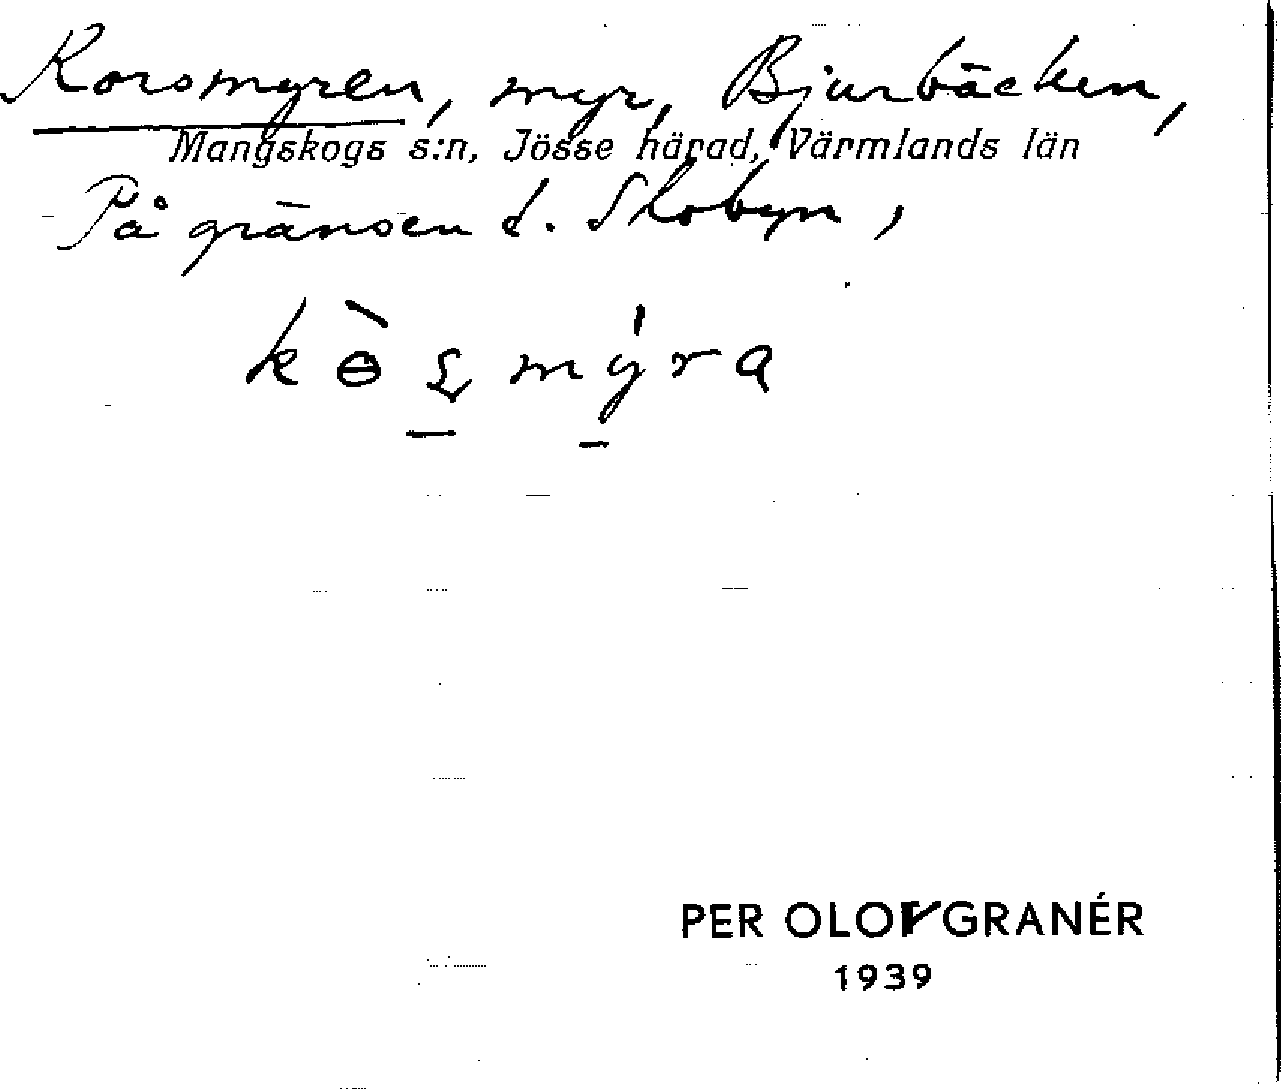 Korsmyren, myr, Bjurbäcken,
Mangskogs s:n, Jösse härad, Värmlands län
På gränsen t. Skobyn,
PER OLOV GRANÉR
1939